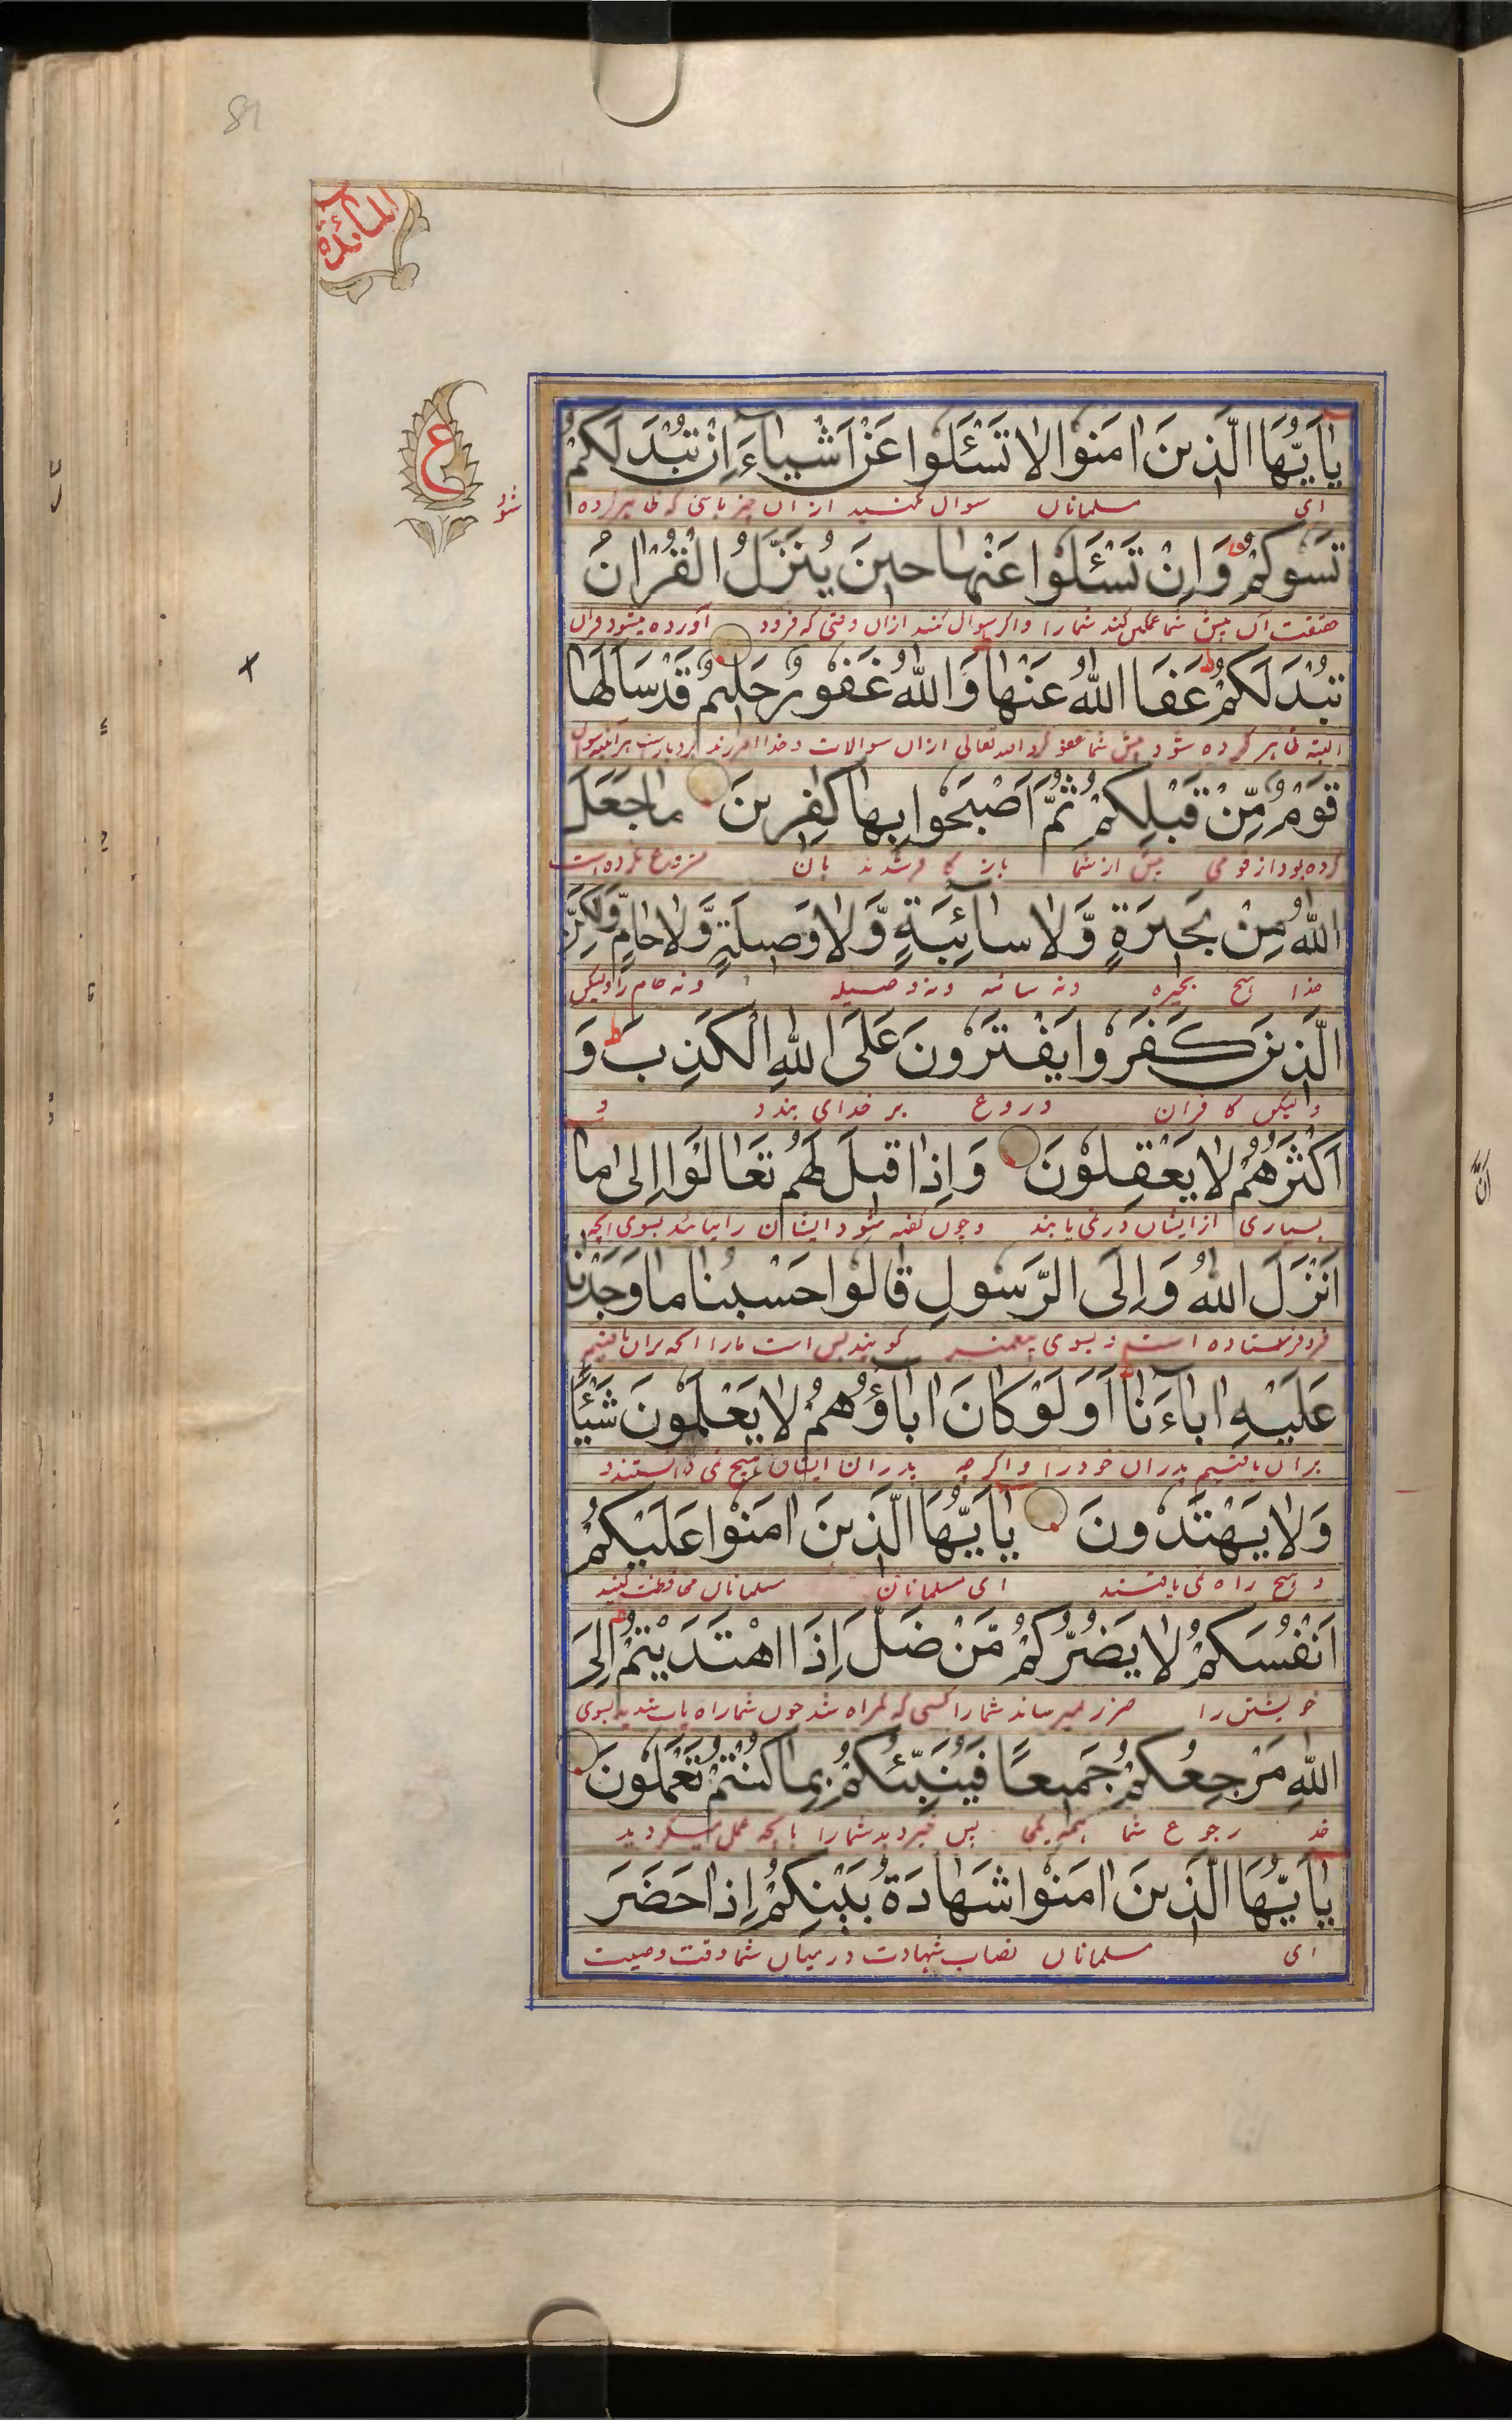 81
المائدة
ع
يٰاَيُّهَا الَّذِينَ اٰمَنُوا لَا تَسْئَلُوا عَنْ اَشْيَاءَ اِنْ تُبْدَ لَكُمْ
ای مسلمانان سوال مکنید از ان چیزهائی که ظاهر کرده
شود
تَسُوكُمْ وَاِنْ تَسْئَلُوا عَنْهَا حِينَ يُنَزَّلُ الْقُرْاٰنُ
حقیقت آن پیش شما غمگین کند شما را و اگر سوال کنند ازان وقتی که فرود آورده میشود قران
تُبْدَ لَكُمْ عَفَا اللّٰهُ عَنْهَا وَاللّٰهُ غَفُورٌ حَلِيمٌ قَدْ سَاَلَهَا
البته ظاهر کرده شود پیش شما عفو کرد الله تعالی ازان سوالات و خدا
قَوْمٌ مِّنْ قَبْلِكُمْ ثُمَّ اَصْبَحُوا بِهَا كٰفِرِينَ مَا جَعَلَ
کرده بود از قومی پیش از شما باز کافر شدند بان
اللّٰهُ مِنْ بَحِيرَةٍ وَّلَا سَائِبَةٍ وَّلَا وَصِيلَةٍ وَّلَا حَامٍ وَّلٰكِنَّ
خدا هیچ بحیره ونه سائبه ونه وصیله ونه حام را ولیکن
الَّذِينَ كَفَرُوا يَفْتَرُونَ عَلَى اللّٰهِ الْكَذِبَ وَ
ولیکن کافران دروغ بر خدای بندد و
اَكْثَرُهُمْ لَا يَعْقِلُونَ وَاِذَا قِيلَ لَهُمْ تَعَالَوْا اِلٰى مَا
بسیاری از ایشان در نمی یابند وچون گفته شود ایشان را بیائید بسوی انچه
اَنْزَلَ اللّٰهُ وَاِلَى الرَّسُولِ قَالُوا حَسْبُنَا مَا وَجَدْنَا
فرو فرستاده است و بسوی پیغمبر گویند بس است مارا انکه بران یافتیم
عَلَيْهِ اٰبَاءَنَا اَوَلَوْ كَانَ اٰبَاؤُهُمْ لَا يَعْلَمُونَ شَيْئًا
بران یافتیم پدران خود را و اگرچه پدران ایشان هیچ نمی دانستند
وَلَا يَهْتَدُونَ يٰاَيُّهَا الَّذِينَ اٰمَنُوا عَلَيْكُمْ
و هیچ راه نمی یافتند ای مسلمانان مسلمانان محافظت کنید
اَنْفُسَكُمْ لَا يَضُرُّكُمْ مَّنْ ضَلَّ اِذَا اهْتَدَيْتُمْ اِلَى
خویشتن را ضرر نمیرساند شما را کسی که گمراه شد چون شما راه یاب شدید بسوی
اللّٰهِ مَرْجِعُكُمْ جَمِيعًا فَيُنَبِّئُكُمْ بِمَا كُنْتُمْ تَعْمَلُونَ
خد رجوع شما همه یکی پس خبر دهد شما را بانچه عمل میکردید
يٰاَيُّهَا الَّذِينَ اٰمَنُوا شَهَادَةُ بَيْنِكُمْ اِذَا حَضَرَ
ای مسلمانان نصاب شهادت درمیان شما وقت وصیت